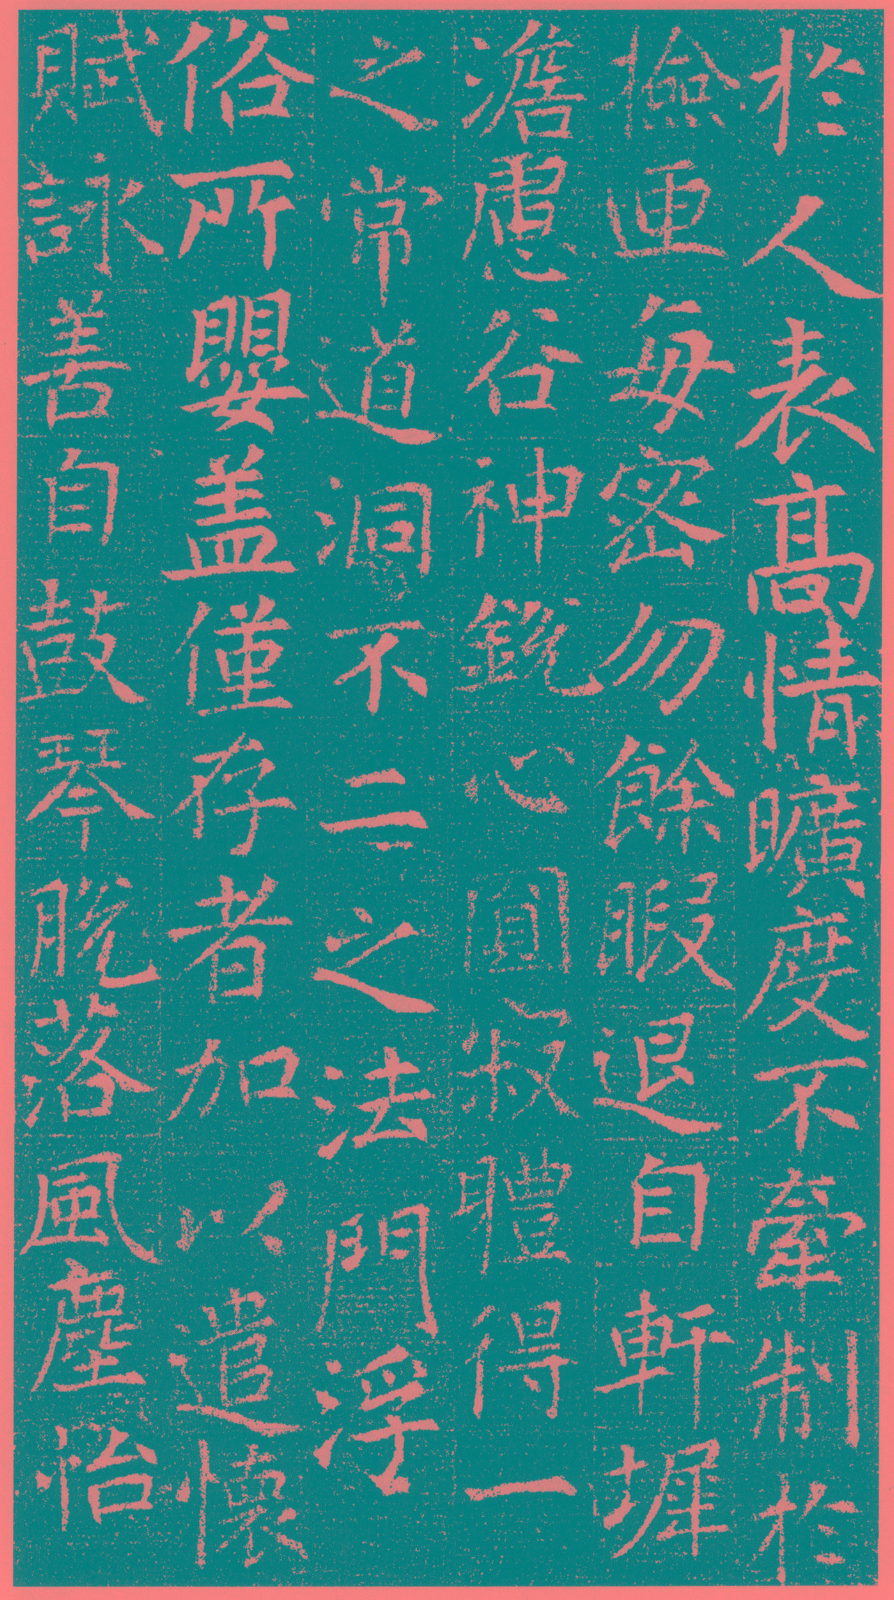 於人表高情曠度不牽制於
撿迊每密勿餘暇退自軒墀
澹慮谷神銳心圓寂體得一
之常道洞不二之法門浮
俗所嬰蓋僅存者加以遣懷
賦詠善自鼓琴脫落風塵怡